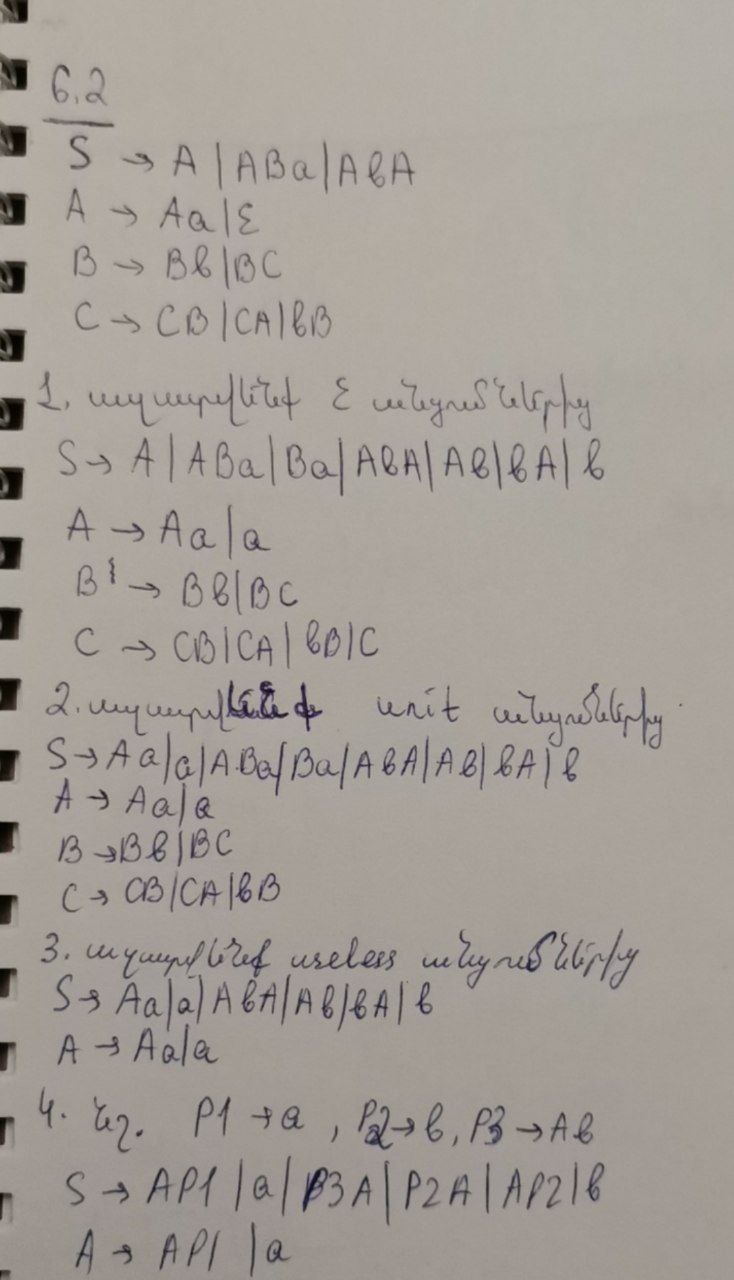 6.2
S → A | ABa | AbA
A → Aa | ε
B → Bb | BC
C → CB | CA | bB
1. ազատվենք ε անցումներից
S → A | ABa | Ba | AbA | Ab | bA | b
A → Aa | a
B → Bb | BC
C → CB | CA | bB | C
2. ազատվենք unit անցումներից
S → Aa | a | ABa | Ba | AbA | Ab | bA | b
A → Aa | a
B → Bb | BC
C → CB | CA | bB
3. ազատվենք useless անցումներից
S → Aa | a | AbA | Ab | bA | b
A → Aa | a
4. նշ. P1 → a, P2 → b, P3 → Ab
S → AP1 | a | P3A | P2A | AP2 | b
A → AP1 | a